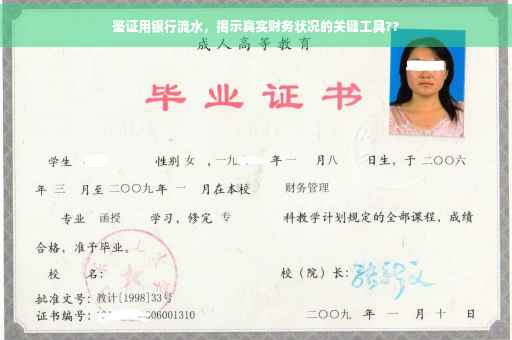 鉴证用银行流水，揭示真实财务状况的关键工具??
成人高等教育
毕业证书
学生 性别 女 ，一九 年 一 月八 日生，于 二〇〇六
年 三 月至 二〇〇九 年 一 月在本校 财务管理
专业 函授 学习，修完 专 科教学计划规定的全部课程，成绩
合格，准予毕业。
校 名： 校（院）长：
批准文号：教计[1998]33号
证书编号： 06001310 二〇〇九 年 一 月 十 日